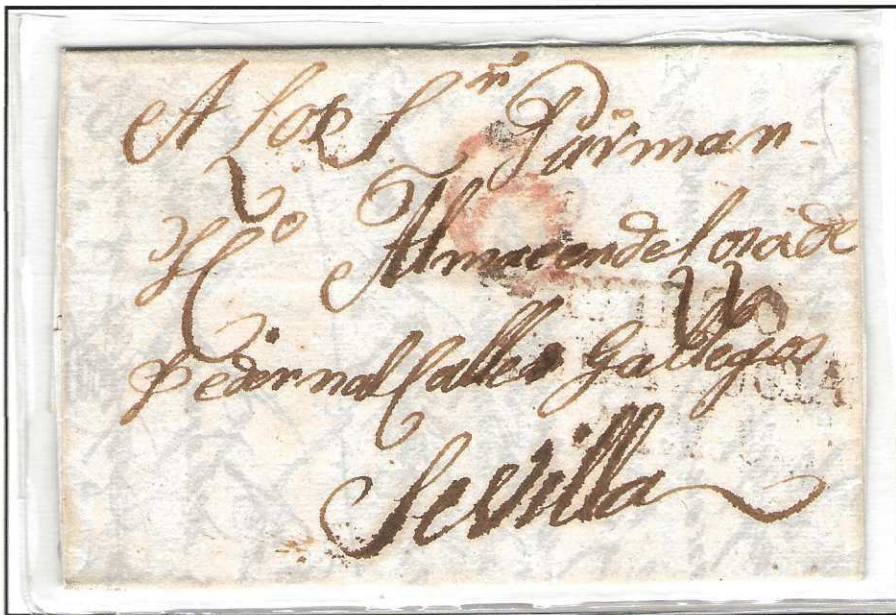 A los S.ʳ Parman-
H.º Almacen de losa de
Pedernal Calle Gallegos
Sevilla